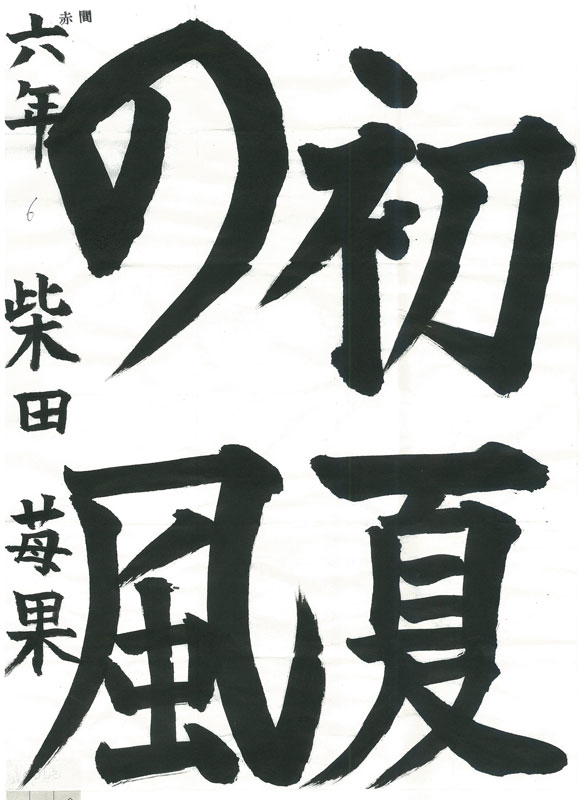 初夏
の風
赤間
六年 柴田 苺果
6